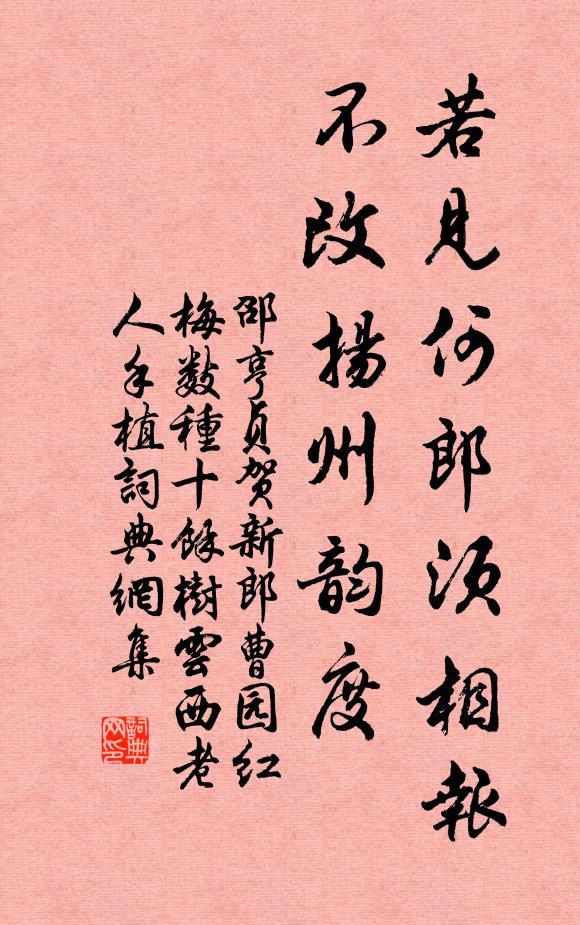 若见何郎须相報
不改揚州韵度
邵亨贞贺新郎曹园红
梅数種十餘樹雲西老
人手植詞典網集
詞典网印